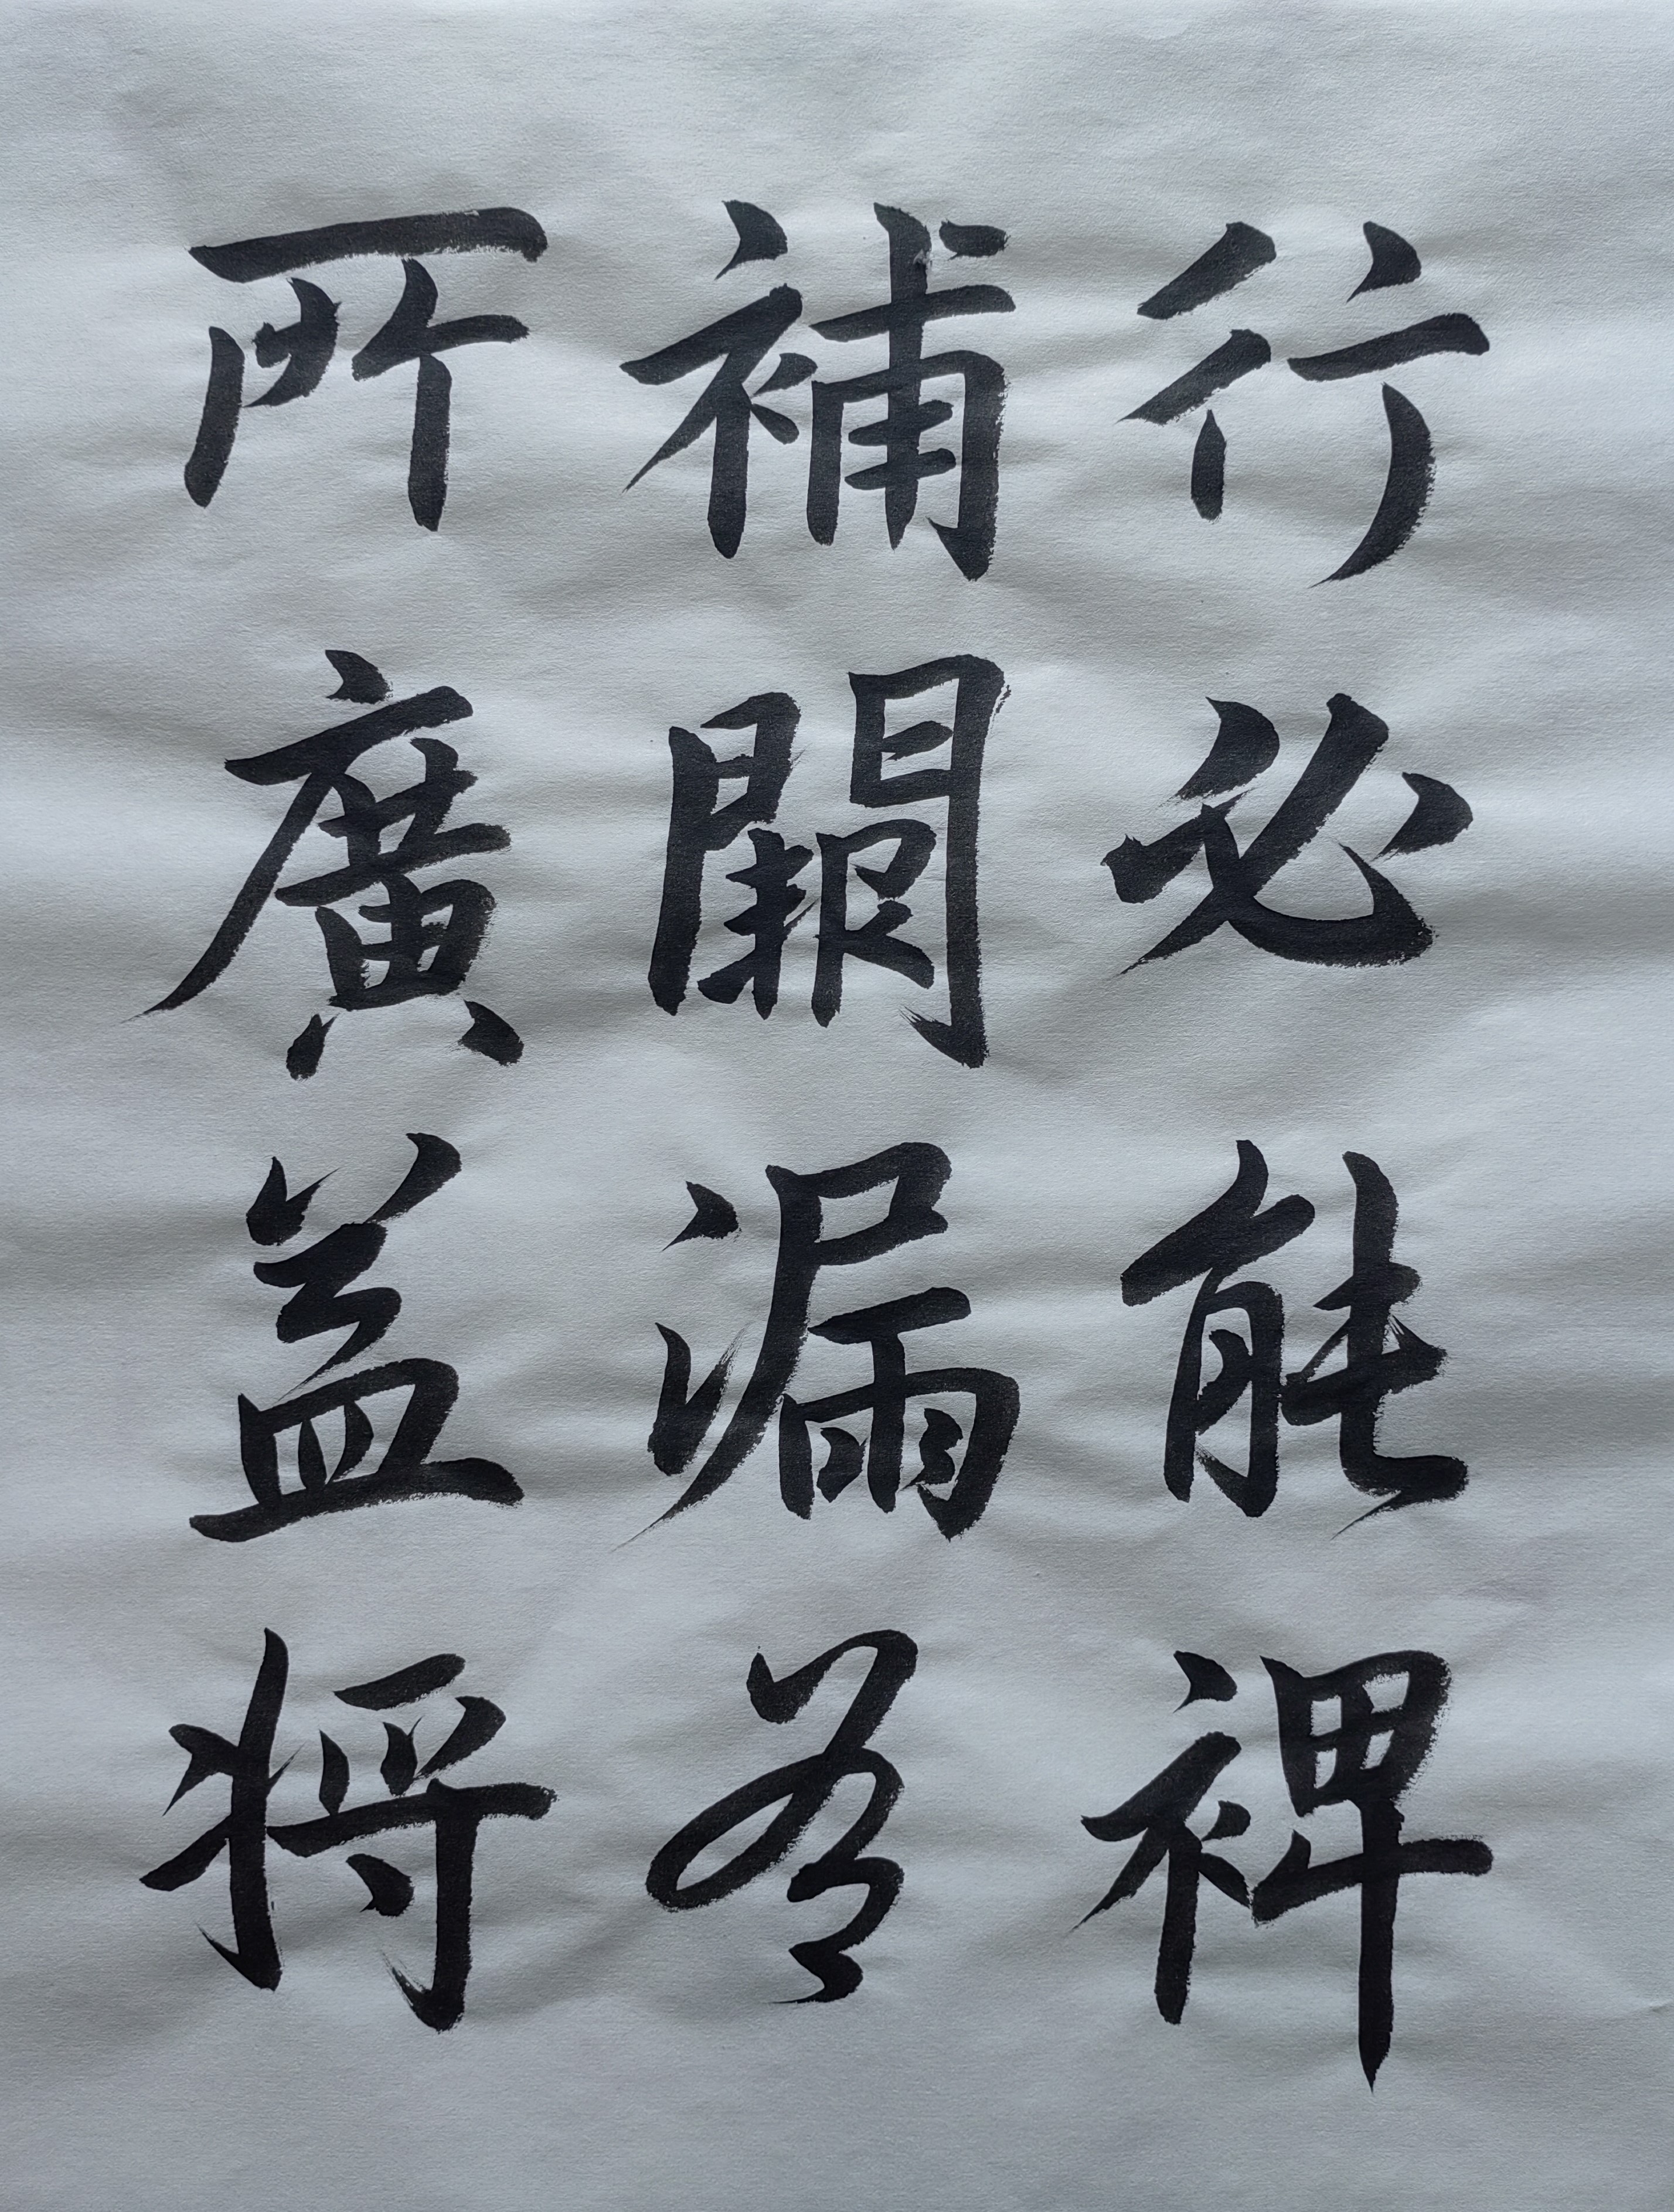 行必能裨
補闕漏有
所廣益將